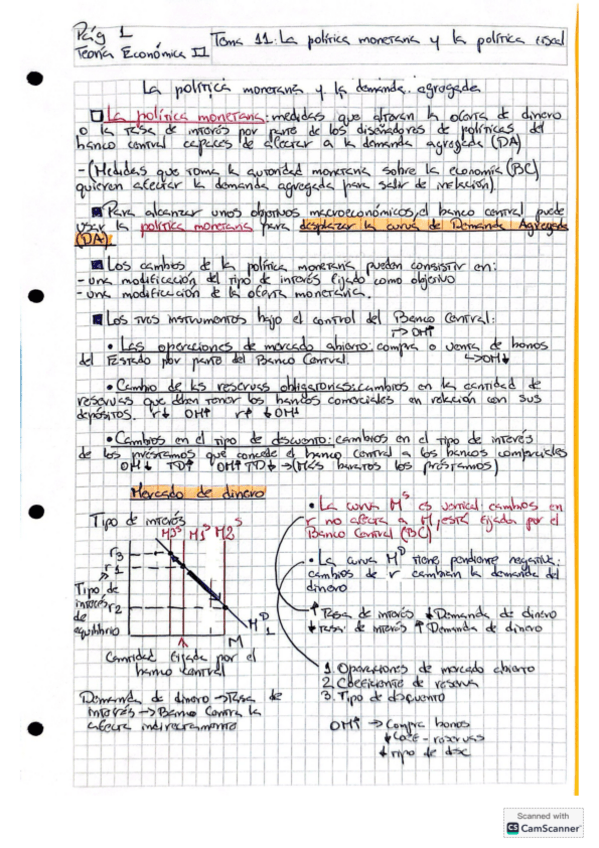 Pág 1
Teoría Económica II
Tema 11: La política monetaria y la política fiscal
La política monetaria y la demanda agregada
La política monetaria: medidas que alteran la oferta de dinero
o la tasa de interés por parte de los diseñadores de políticas del
banco central capaces de afectar a la demanda agregada (DA)
-(Medidas que toma la autoridad monetaria sobre la economía (BC)
quieren afectar la demanda agregada para salir de inflación)
Para alcanzar unos objetivos macroeconómicos, el banco central puede
usar la política monetaria para desplazar la curva de Demanda Agregada
(DA).
Los cambios de la política monetaria pueden consistir en:
- una modificación del tipo de interés fijado como objetivo
- una modificación de la oferta monetaria.
Los tres instrumentos bajo el control del Banco Central:
→OM↑
• Las operaciones de mercado abierto: compra o venta de bonos
del Estado por parte del Banco Central. →OM↓
• Cambio de las reservas obligatorias: cambios en la cantidad de
reservas que deben tener los bancos comerciales en relación con sus
depósitos. r↓ OM↑ r↑ ↓OM↓
• Cambios en el tipo de descuento: cambios en el tipo de interés
de los préstamos que concede el banco central a los bancos comerciales
OM↓ TD↑ OM↑ TD↓ → (Más baratos los préstamos)
Mercado de dinero
Tipo de interés
M3S M1S M2S
r3
r1
Tipo de
interés
de
equilibrio
r2
MD
1
M
Cantidad fijada por el
banco central
Demanda de dinero → Tasa de
interés → Banco Central la
afecta indirectamente
• La curva MS es vertical: cambios en
r no afecta a M, está fijada por el
Banco Central (BC)
• La curva MD tiene pendiente negativa:
cambios de r cambian la demanda del
dinero
↑ Tasa de interés ↓ Demanda de dinero
↓ tasa de interés ↑ Demanda de dinero
1. Operaciones de mercado abierto
2. Coeficiente de reserva
3. Tipo de descuento
OM↑ → Compra bonos
↓ Coef-reservas
↓ tipo de desc
Scanned with
CS CamScanner